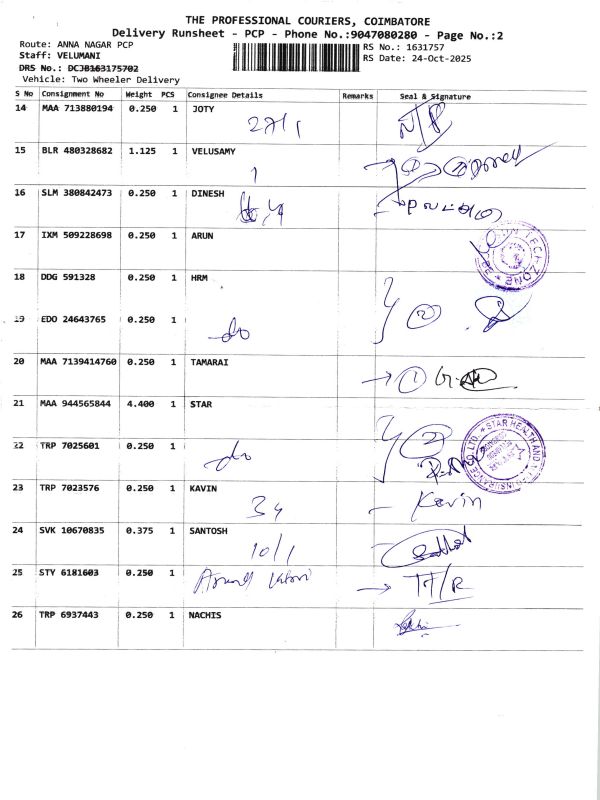 THE PROFESSIONAL COURIERS, COIMBATORE
Delivery Runsheet - PCP - Phone No.:9047080280 - Page No.:2
Route: ANNA NAGAR PCP
RS No.: 1631757
Staff: VELUMANI
RS Date: 24-Oct-2025
DRS No.: DCJB163175702
Vehicle: Two Wheeler Delivery
S No Consignment No Weight PCS Consignee Details Remarks Seal & Signature
14 MAA 713880194 0.250 1 JOTY
27/1
15 BLR 480328682 1.125 1 VELUSAMY
1
16 SLM 380842473 0.250 1 DINESH
17 IXM 509228698 0.250 1 ARUN
TECHZONE
18 DDG 591328 0.250 1 HRM
2
19 EDO 24643765 0.250 1
do
20 MAA 7139414760 0.250 1 TAMARAI
1
21 MAA 944565844 4.400 1 STAR
2
STAR HEALTH AND
INSURANCE CO. LTD.
22 TRP 7025601 0.250 1
do
23 TRP 7023576 0.250 1 KAVIN
34 Kavin
24 SVK 10670835 0.375 1 SANTOSH
10/1
25 STY 6181603 0.250 1
26 TRP 6937443 0.250 1 NACHIS